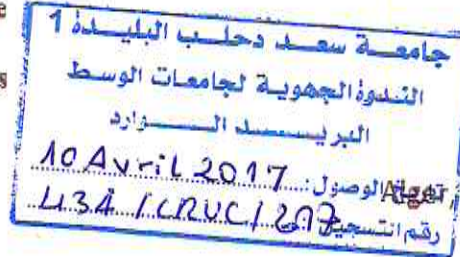 جامعة سعد دحلب البليدة 1
الندوة الجهوية لجامعات الوسط
البريد الوارد
الوصول: 10 Avril 2017 Alger,
رقم التسجيل 434 / CRUC /